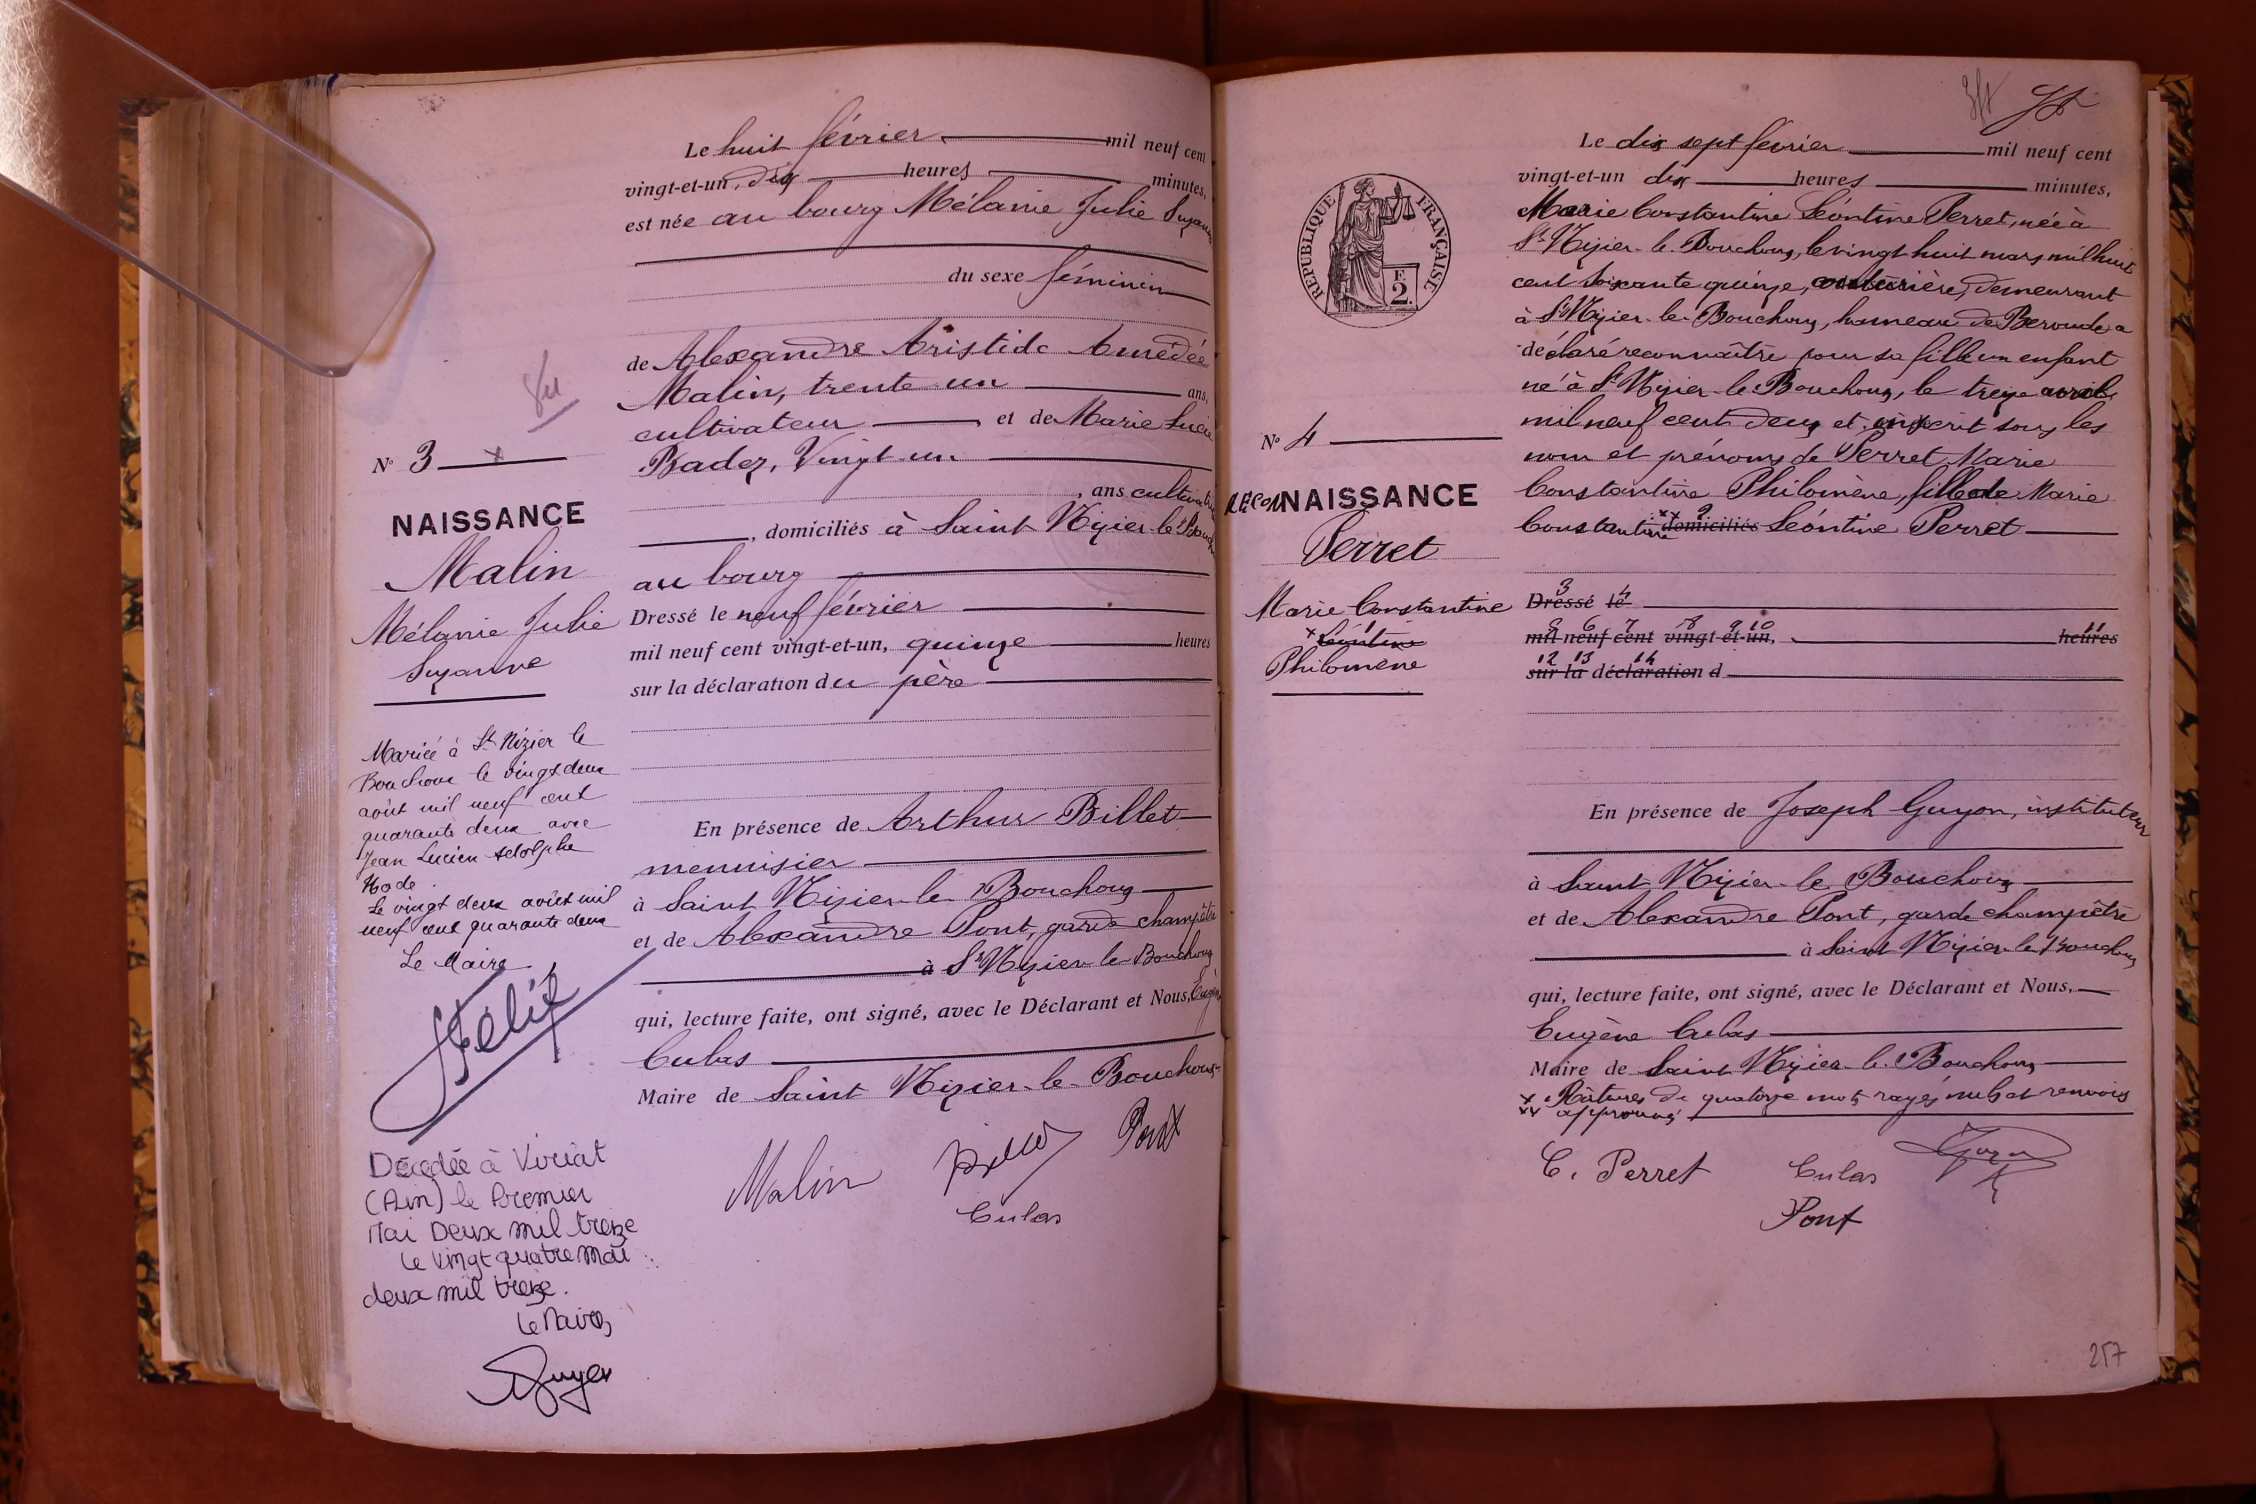 Le huit février mil neuf cent
vingt-et-un, dix heures minutes,
est née au bourg Mélanie Julie Suzanne
du sexe féminin
de Alexandre Aristide Amédée
Malin, trente un ans,
cultivateur et de Marie Lucie
Badez, Vingt un
, ans cultivatrice
, domiciliés à Saint Nizier-le-Bouch
au bourg
Dressé le neuf février
mil neuf cent vingt-et-un, quinze heures
sur la déclaration du père
En présence de Arthur Billet
menuisier
à Saint Nizier-le-Bouchoux
et de Alexandre Pont, garde champêtre
à St Nizier-le-Bouchoux
qui, lecture faite, ont signé, avec le Déclarant et Nous, Eugène
Culas
Maire de Saint Nizier-le-Bouchoux
Malin Billet Pont
Culas
Vu
N° 3 x
NAISSANCE
Malin
Mélanie Julie
Suzanne
Mariée à St Nizier le
Bouchoux le vingt deux
août mil neuf cent
quarante deux avec
Jean Lucien Adolphe
Le vingt deux août mil
neuf cent quarante deux
Le Maire
Félix
Décédée à Viriat
(Ain) le Premier
Mai Deux mil treize
le vingt quatre mai
deux mil treize.
Le Maire,
257
RÉPUBLIQUE FRANÇAISE
F.
2.
N° 4
RECONNAISSANCE
Perret
Marie Constantine
x Léontine
Philomène
Le dix sept février mil neuf cent
vingt-et-un dix heures minutes,
Marie Constantine Léontine Perret, née à
St Nizier-le-Bouchoux, le vingt huit mars mil huit
cent soixante quinze, couturière, demeurant
à St Nizier-le-Bouchoux, hameau de Beroude, a
déclaré reconnaître pour sa fille un enfant
né à St Nizier-le-Bouchoux, le treize avril
mil neuf cent deux et inscrit sous les
nom et prénoms de Perret Marie
Constantine Philomène, fille de Marie
Constantine xx domiciliés 2 Léontine Perret
3 4
Dressé le
5 6 7 8 9 10 11
mil neuf cent vingt-et-un, heures
12 13 14
sur la déclaration d
En présence de Joseph Guyon, instituteur
à Saint Nizier-le-Bouchoux
et de Alexandre Pont, garde champêtre
à Saint Nizier-le-Bouchoux
qui, lecture faite, ont signé, avec le Déclarant et Nous,
Eugène Culas
Maire de Saint Nizier-le-Bouchoux
x Ratures de quatorze mots rayés nuls et renvois
xx approuvés
C. Perret Culas Guyon
Pont